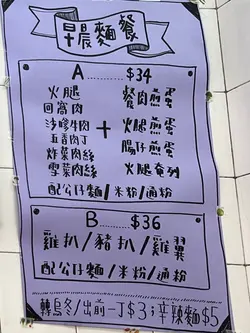 早晨麵餐
A ......... $34
火腿
回窩肉
沙嗲牛肉
五香肉丁
炸菜肉絲
雪菜肉絲
+
餐肉煎蛋
火腿煎蛋
腸仔煎蛋
火腿奄列
配公仔麵/米粉/通粉
B ......... $36
雞扒/豬扒/雞翼
配公仔麵/米粉/通粉
轉烏冬/出前一丁$3;辛辣麵$5